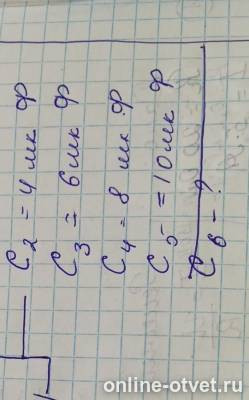 C₂ = 4 мк Ф
C₃ = 6 мк Ф
C₄ = 8 мк Ф
C₅ = 10 мк Ф
C₆ - ?
online-otvet.ru